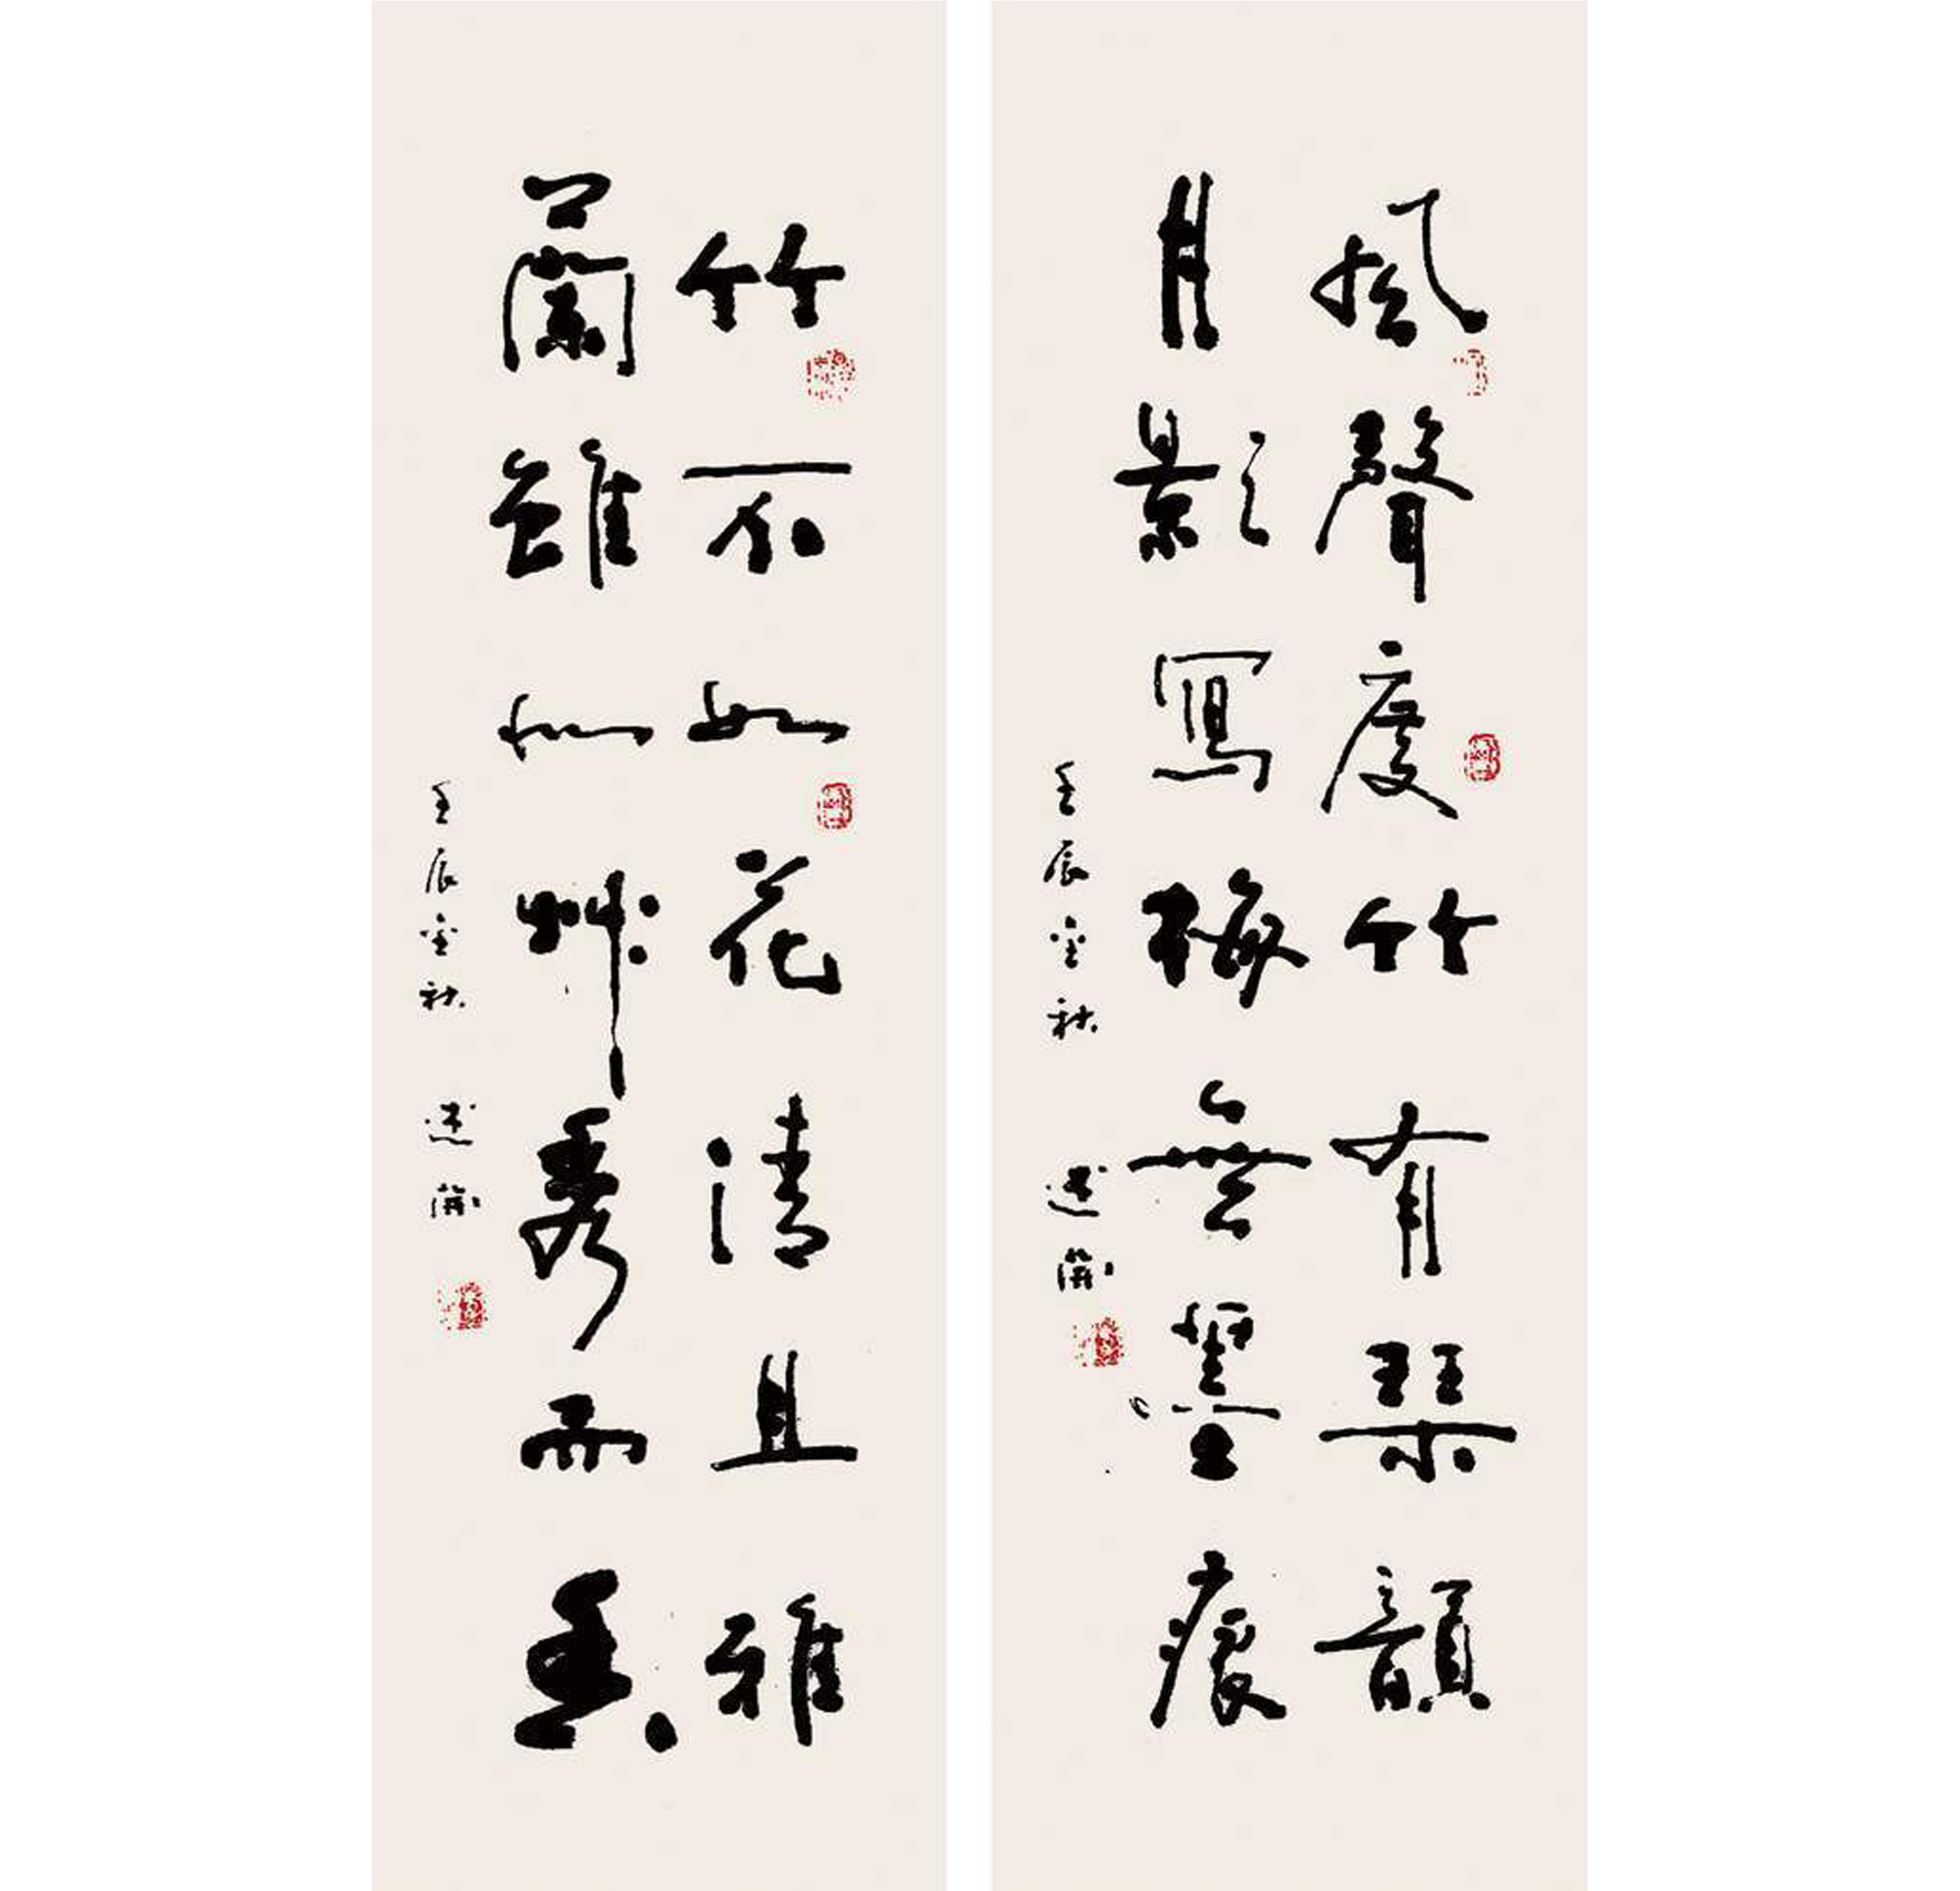 風聲度竹有琹韻
月影寫梅無墨痕
壬辰金秋
竹不如花清且雅
蘭雖似艸秀而香
壬辰金秋